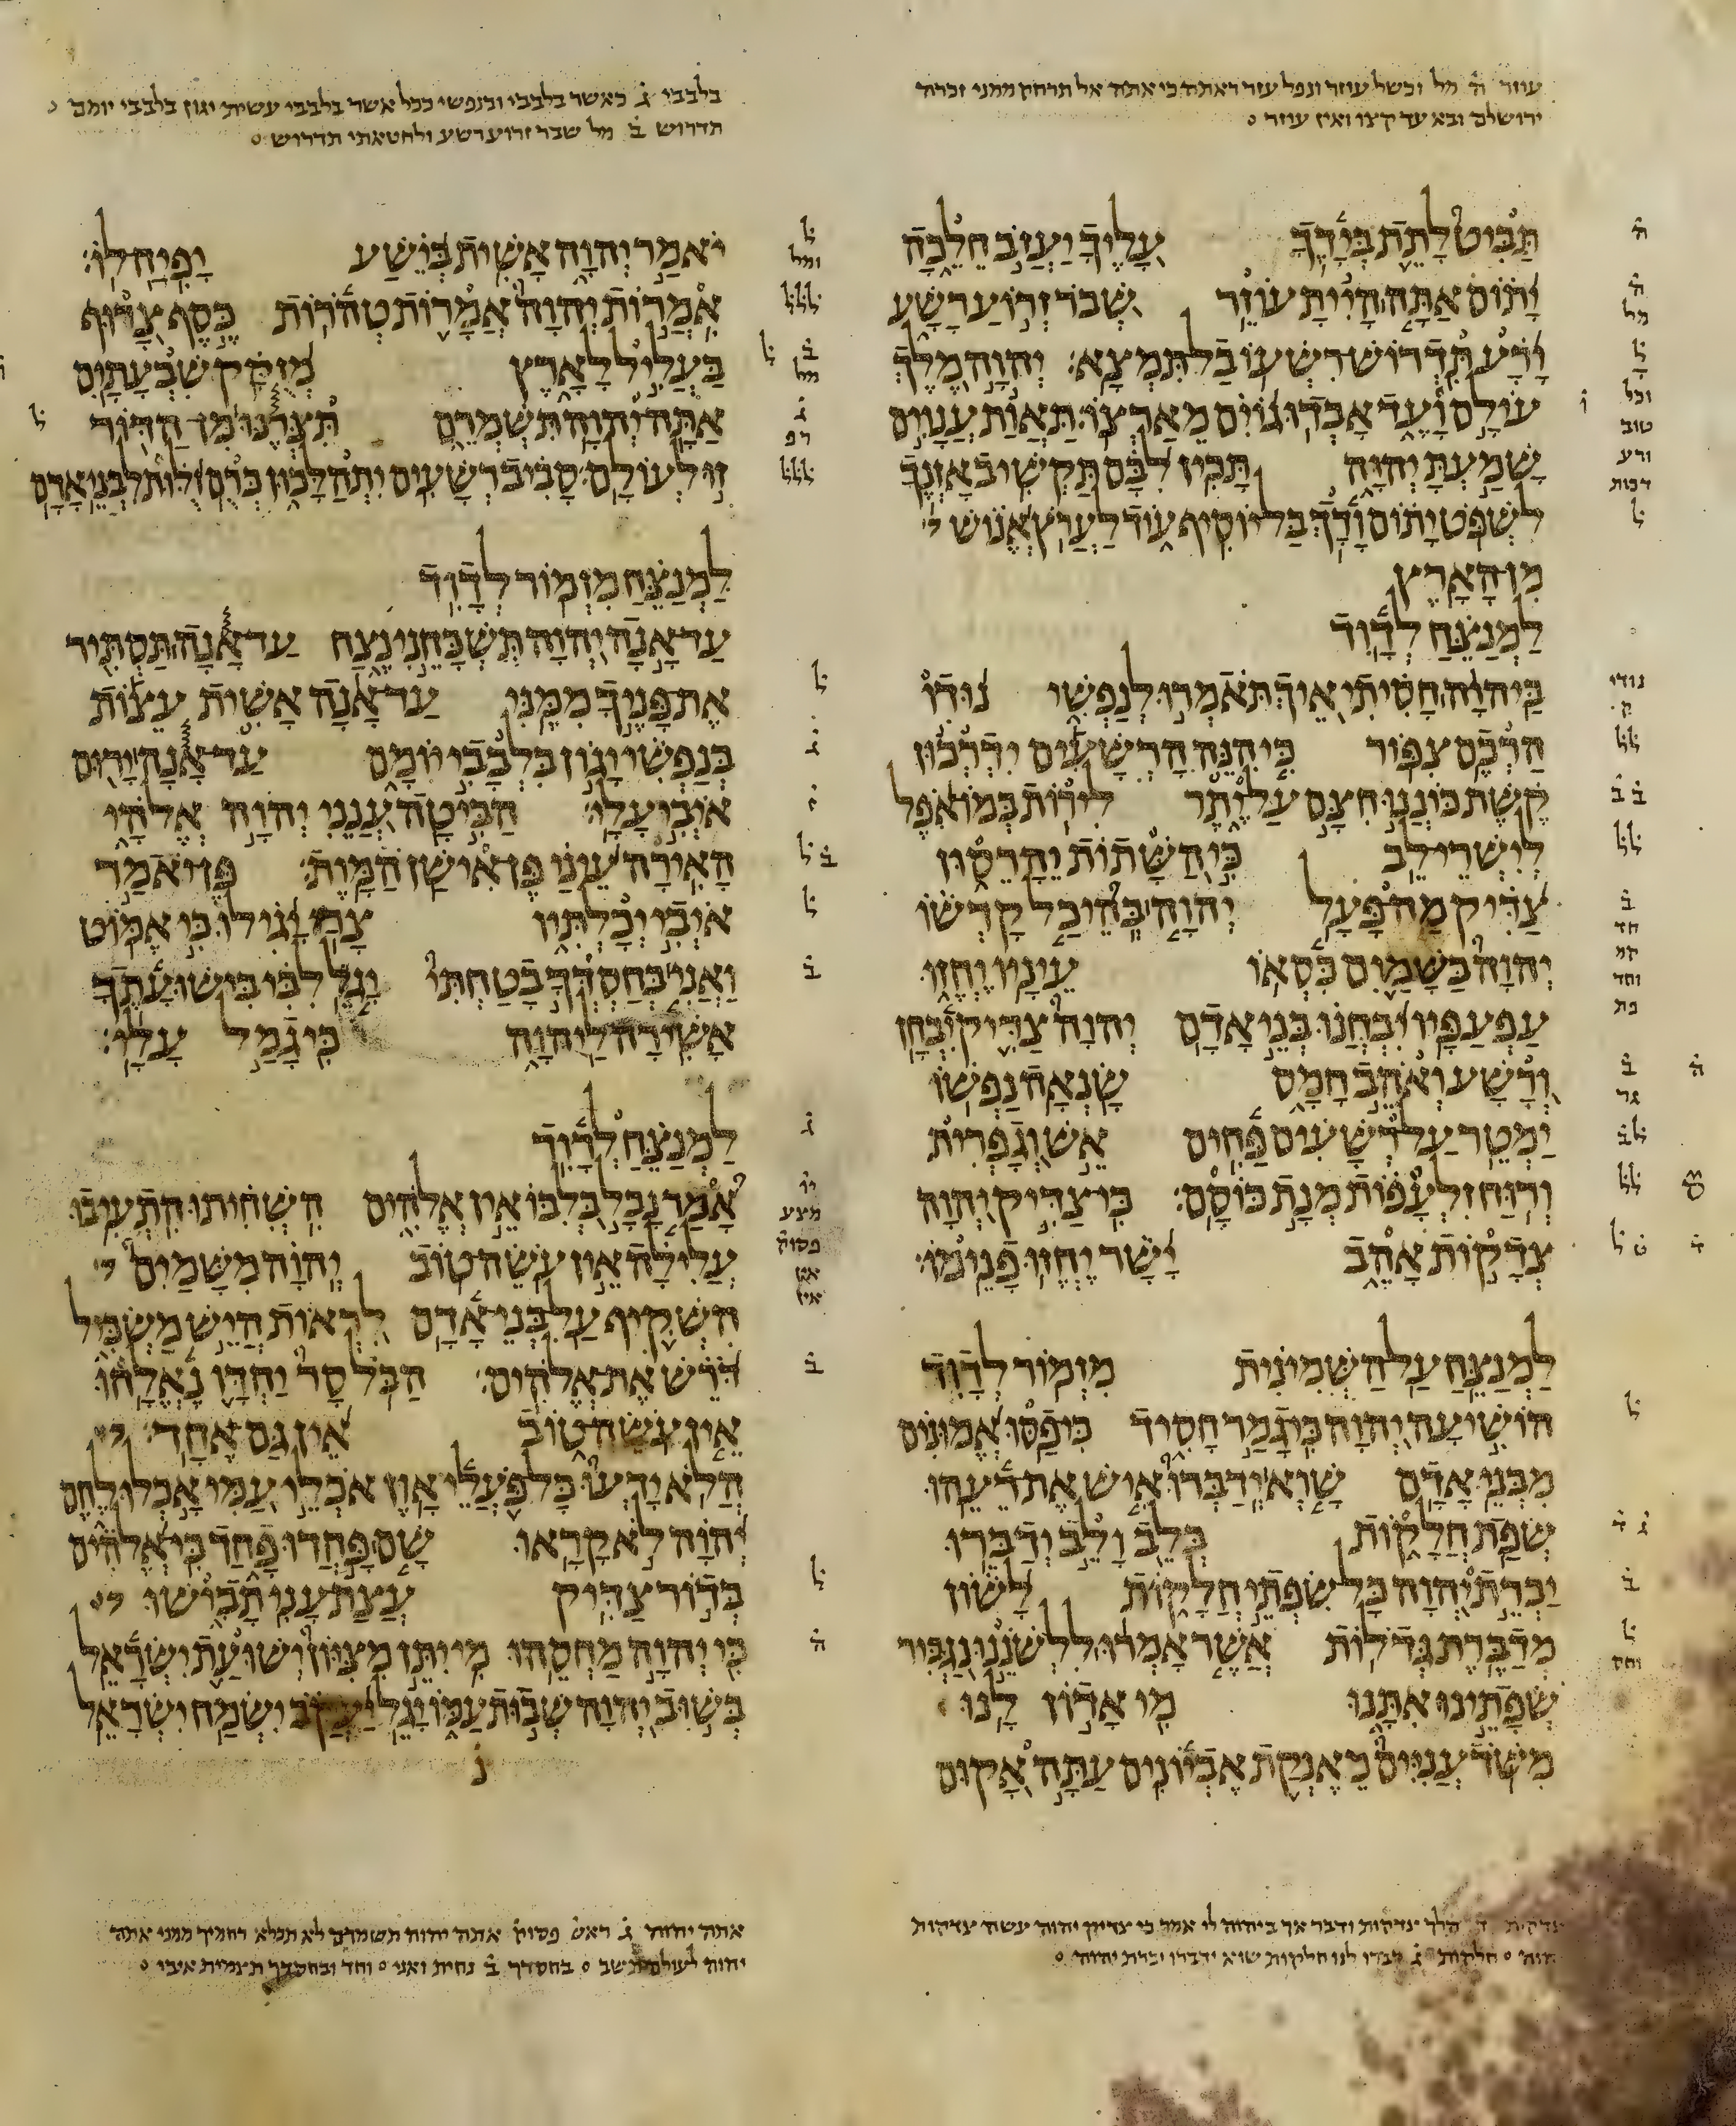 עוזר ה מל וכשל עוזר ונפל עזר ראתה כי אתה אל תרחק ממני
ירושלם ובא עד קצו ואין עוזר
תַּבִּיט לָתֵת בְּיָדֶךָ עָלֶיךָ יַעֲזֹב חֵלֵכָה
יָתוֹם אַתָּה הָיִיתָ עוֹזֵר שְׁבֹר זְרוֹעַ רָשָׁע
וָרָע תִּדְרוֹשׁ רִשְׁעוֹ בַל תִּמְצָא יְהוָה מֶלֶךְ
עוֹלָם וָעֶד אָבְדוּ גוֹיִם מֵאַרְצוֹ תַּאֲוַת עֲנָוִים
שָׁמַעְתָּ יְהוָה תָּכִין לִבָּם תַּקְשִׁיב אָזְנֶךָ
לִשְׁפֹּט יָתוֹם וָדָךְ בַּל יוֹסִיף עוֹד לַעֲרֹץ אֱנוֹשׁ
מִן הָאָרֶץ
לַמְנַצֵּחַ לְדָוִד
בַּיהוָה חָסִיתִי אֵיךְ תֹּאמְרוּ לְנַפְשִׁי נוּדוּ
הַרְכֶם צִפּוֹר כִּי הִנֵּה הָרְשָׁעִים יִדְרְכוּן
קֶשֶׁת כּוֹנְנוּ חִצָּם עַל יֶתֶר לִירוֹת בְּמוֹ אֹפֶל
לְיִשְׁרֵי לֵב כִּי הַשָּׁתוֹת יֵהָרֵסוּן
צַדִּיק מַה פָּעָל יְהוָה בְּהֵיכַל קָדְשׁוֹ
יְהוָה בַּשָּׁמַיִם כִּסְאוֹ עֵינָיו יֶחֱזוּ
עַפְעַפָּיו יִבְחֲנוּ בְּנֵי אָדָם יְהוָה צַדִּיק יִבְחָן
וְרָשָׁע וְאֹהֵב חָמָס שָׂנְאָה נַפְשׁוֹ
יַמְטֵר עַל רְשָׁעִים פַּחִים אֵשׁ וְגָפְרִית
וְרוּחַ זִלְעָפוֹת מְנָת כּוֹסָם כִּי צַדִּיק יְהוָה
צְדָקוֹת אָהֵב יָשָׁר יֶחֱזוּ פָנֵימוֹ
לַמְנַצֵּחַ עַל הַשְּׁמִינִית מִזְמוֹר לְדָוִד
הוֹשִׁיעָה יְהוָה כִּי גָמַר חָסִיד כִּי פַסּוּ אֱמוּנִים
מִבְּנֵי אָדָם שָׁוְא יְדַבְּרוּ אִישׁ אֶת רֵעֵהוּ
שְׂפַת חֲלָקוֹת בְּלֵב וָלֵב יְדַבֵּרוּ
יַכְרֵת יְהוָה כָּל שִׂפְתֵי חֲלָקוֹת לָשׁוֹן
מְדַבֶּרֶת גְּדֹלוֹת אֲשֶׁר אָמְרוּ לִלְשֹׁנֵנוּ נַגְבִּיר
שְׂפָתֵינוּ אִתָּנוּ מִי אָדוֹן לָנוּ
מִשֹּׁד עֲנִיִּים מֵאֶנְקַת אֶבְיוֹנִים עַתָּה אָקוּם
צדקות ד הלך צדקות ודבר אך ביהוה לי אמר כי צדיק יהוה עשה צדקות
יהוה חלקות ג דברו לנו חלקות שוא ידברו יכרת יהוה
בלבבי ג כאשר בלבבי ובנפשי ככל אשר בלבבי עשית יגון בלבבי יומם
תדרוש ב מל שבר זרוע רשע ולחטאתי תדרוש
יֹאמַר יְהוָה אָשִׁית בְּיֵשַׁע יָפִיחַ לוֹ
אִמֲרוֹת יְהוָה אֲמָרוֹת טְהֹרוֹת כֶּסֶף צָרוּף
בַּעֲלִיל לָאָרֶץ מְזֻקָּק שִׁבְעָתָיִם
אַתָּה יְהוָה תִּשְׁמְרֵם תִּצְּרֶנּוּ מִן הַדּוֹר
זוּ לְעוֹלָם סָבִיב רְשָׁעִים יִתְהַלָּכוּן כְּרֻם זֻלּוּת לִבְנֵי אָדָם
לַמְנַצֵּחַ מִזְמוֹר לְדָוִד
עַד אָנָה יְהוָה תִּשְׁכָּחֵנִי נֶצַח עַד אָנָה תַּסְתִּיר
אֶת פָּנֶיךָ מִמֶּנִּי עַד אָנָה אָשִׁית עֵצוֹת
בְּנַפְשִׁי יָגוֹן בִּלְבָבִי יוֹמָם עַד אָנָה יָרוּם
אֹיְבִי עָלָי הַבִּיטָה עֲנֵנִי יְהוָה אֱלֹהָי
הָאִירָה עֵינַי פֶּן אִישַׁן הַמָּוֶת פֶּן יֹאמַר
אֹיְבִי יְכָלְתִּיו צָרַי יָגִילוּ כִּי אֶמּוֹט
וַאֲנִי בְּחַסְדְּךָ בָטַחְתִּי יָגֵל לִבִּי בִּישׁוּעָתֶךָ
אָשִׁירָה לַיהוָה כִּי גָמַל עָלָי
לַמְנַצֵּחַ לְדָוִד
אָמַר נָבָל בְּלִבּוֹ אֵין אֱלֹהִים הִשְׁחִיתוּ הִתְעִיבוּ
עֲלִילָה אֵין עֹשֵׂה טוֹב יְהוָה מִשָּׁמַיִם
הִשְׁקִיף עַל בְּנֵי אָדָם לִרְאוֹת הֲיֵשׁ מַשְׂכִּיל
דֹּרֵשׁ אֶת אֱלֹהִים הַכֹּל סָר יַחְדָּו נֶאֱלָחוּ
אֵין עֹשֵׂה טוֹב אֵין גַּם אֶחָד
הֲלֹא יָדְעוּ כָּל פֹּעֲלֵי אָוֶן אֹכְלֵי עַמִּי אָכְלוּ לֶחֶם
יְהוָה לֹא קָרָאוּ שָׁם פָּחֲדוּ פָחַד כִּי אֱלֹהִים
בְּדוֹר צַדִּיק עֲצַת עָנִי תָבִישׁוּ
כִּי יְהוָה מַחְסֵהוּ מִי יִתֵּן מִצִּיּוֹן יְשׁוּעַת יִשְׂרָאֵל
בְּשׁוּב יְהוָה שְׁבוּת עַמּוֹ יָגֵל יַעֲקֹב יִשְׂמַח יִשְׂרָאֵל
אתה יהוה ג ראש פסוק אתה יהוה תשמרם לא תכלא רחמיך ממני אתה
יהוה לעולם תשב בחסדך ב נחית ואני וחד ובחסדך תצמית איבי